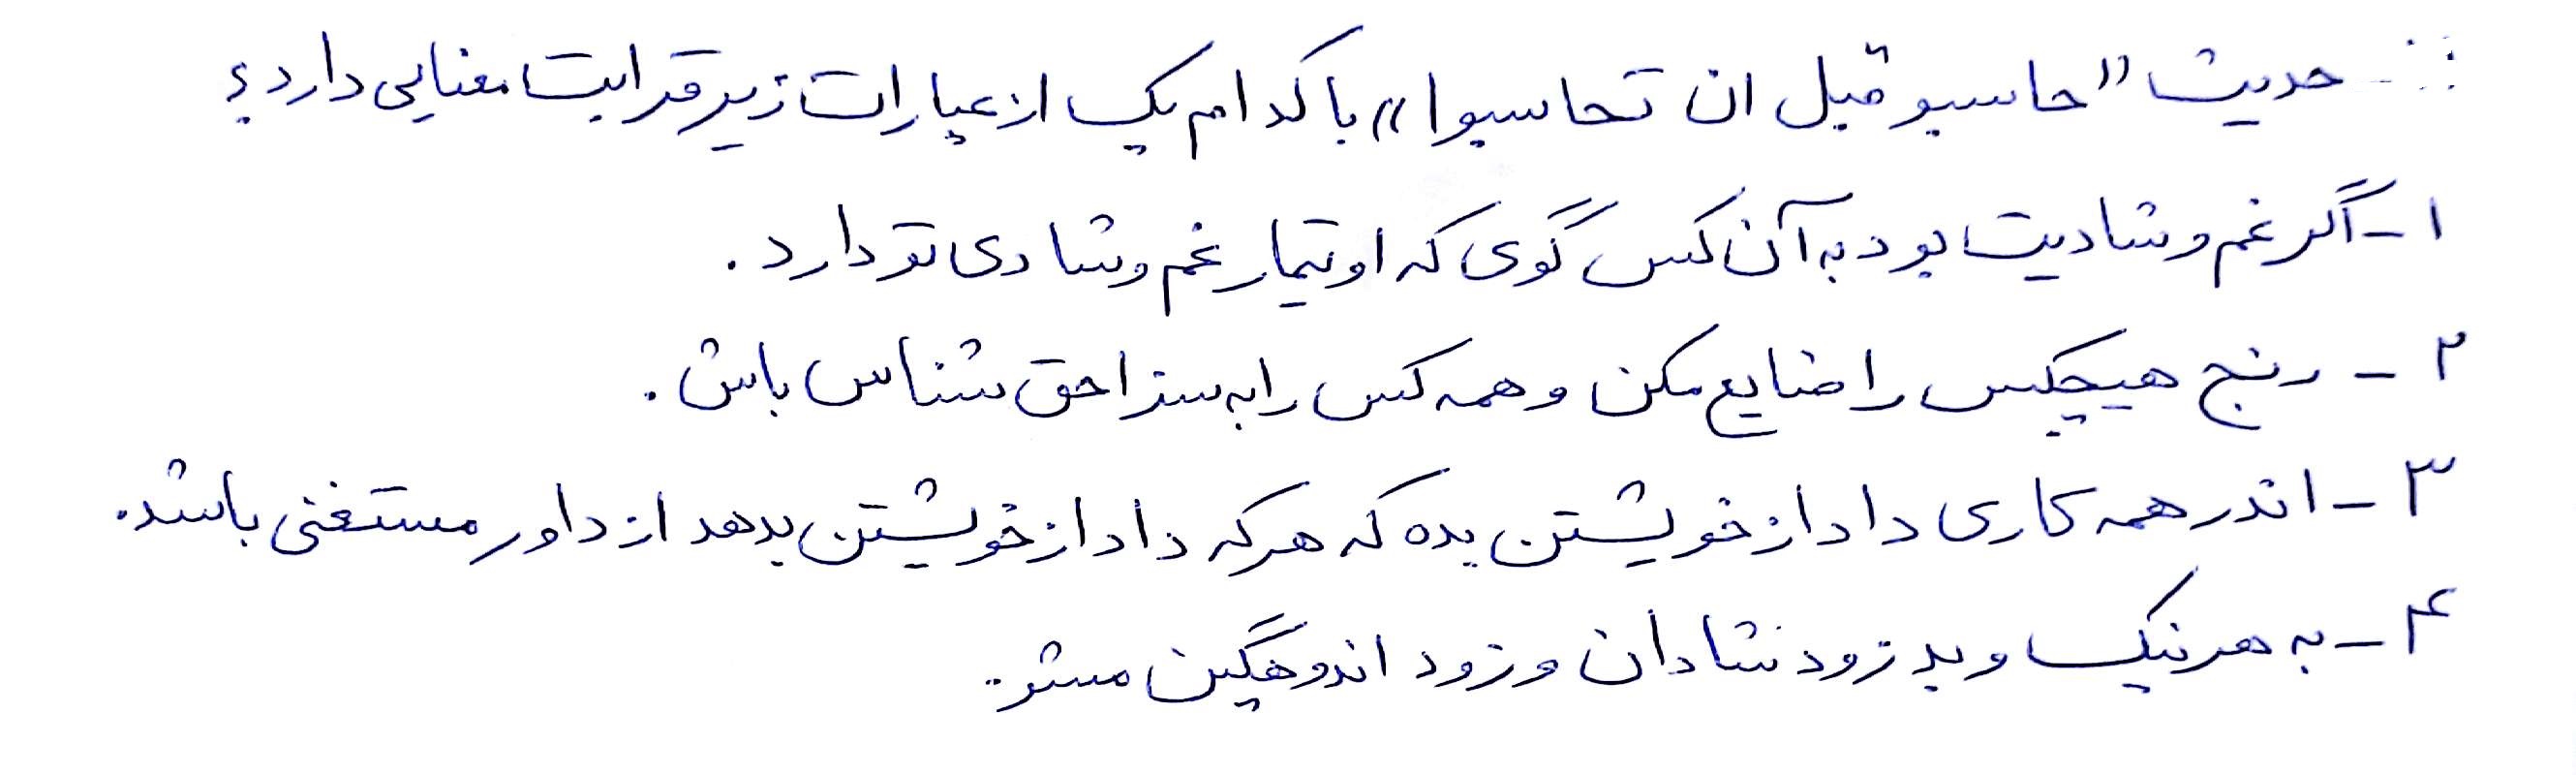 حدیث "حاسبو قبل ان تحاسبوا" با کدام یک از عبارات زیر قرابت معنایی دارد؟
۱- اگر غم و شادیت بود به آن کس گوی که او تیمار غم و شادی تو دارد.
۲- رنج هیچکس را ضایع مکن و همه کس را به سزا حق شناس باش.
۳- اندر همه کاری داد از خویشتن بده که هر که داد از خویشتن بدهد از داور مستغنی باشد.
۴- به هر نیک و بد زود شادان و زود اندوهگین مشو.